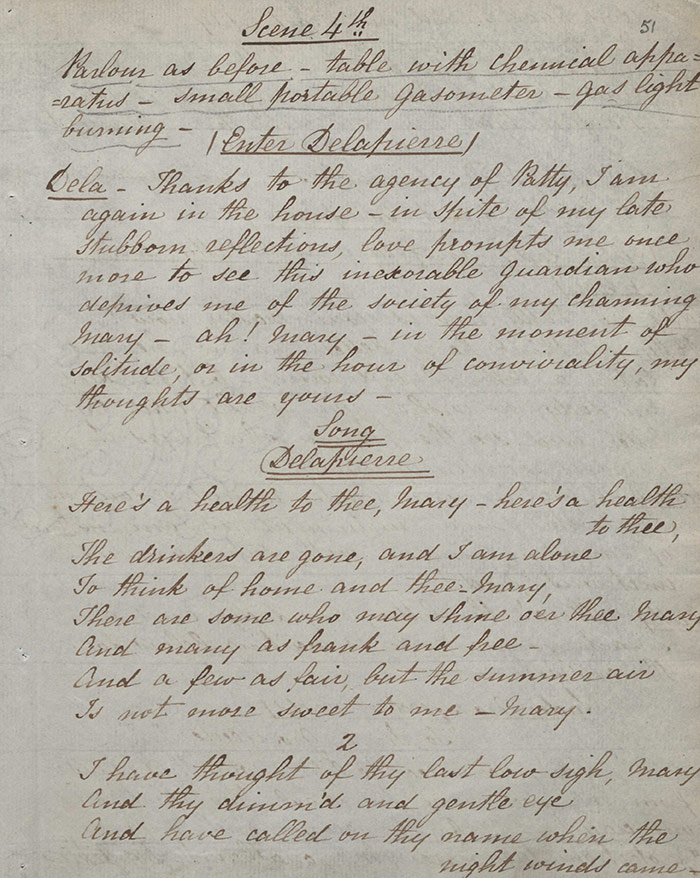 51
Scene 4th
Parlour as before - table with chemical appa=
=ratus - small portable Gasometer - gas light
burning -
(Enter Delapierre)
Dela - Thanks to the agency of Patty, I am
again in the house - in spite of my late
stubborn reflections, love prompts me once
more to see this inexorable Guardian who
deprives me of the society of my charming
Mary - ah! Mary - in the moment of
solitude, or in the hour of conviviality, my
thoughts are yours -
Song
Delapierre
Here's a health to thee, Mary - here's a health
to thee,
The drinkers are gone, and I am alone
To think of home and thee - Mary,
There are some who may shine o'er thee Mary
And many as frank and free -
And a few as fair, but the summer air
Is not more sweet to me - Mary.
2
I have thought of thy last low sigh, Mary
And thy dimm'd and gentle eye
And have called on thy name when the
night winds came -